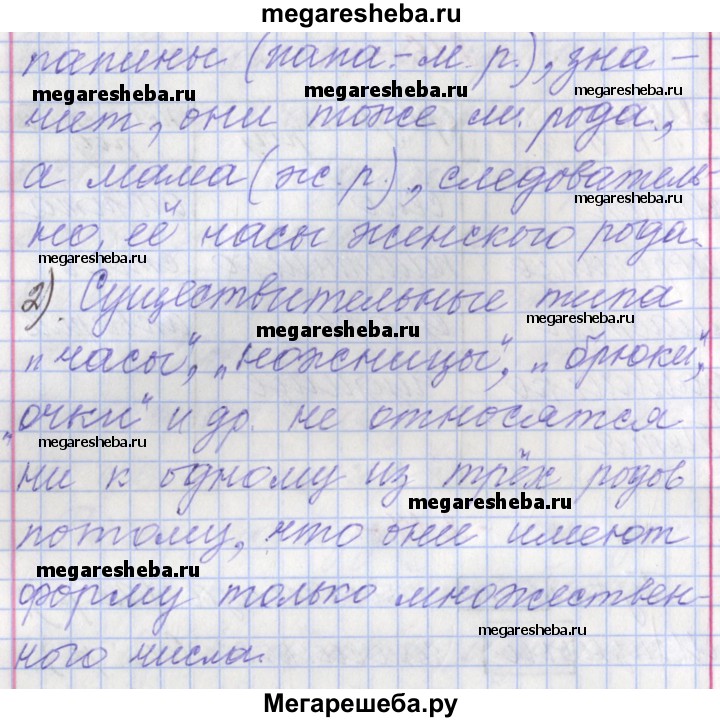 megaresheba.ru
папины (папа - м. р.), зна-
megaresheba.ru
megaresheba.ru
megaresheba.ru
чит, они тоже м. рода,
а мама (ж. р.), следователь-
megaresheba.ru
но, её часы женского рода.
megaresheba.ru
2). Существительные типа
megaresheba.ru
megaresheba.ru
„часы", „ножницы", „брюки",
„очки" и др. не относятся
megaresheba.ru
ни к одному из трёх родов
megaresheba.ru
потому, что они имеют
megaresheba.ru
форму только множествен-
megaresheba.ru
ного числа.
Мегарешеба.ру